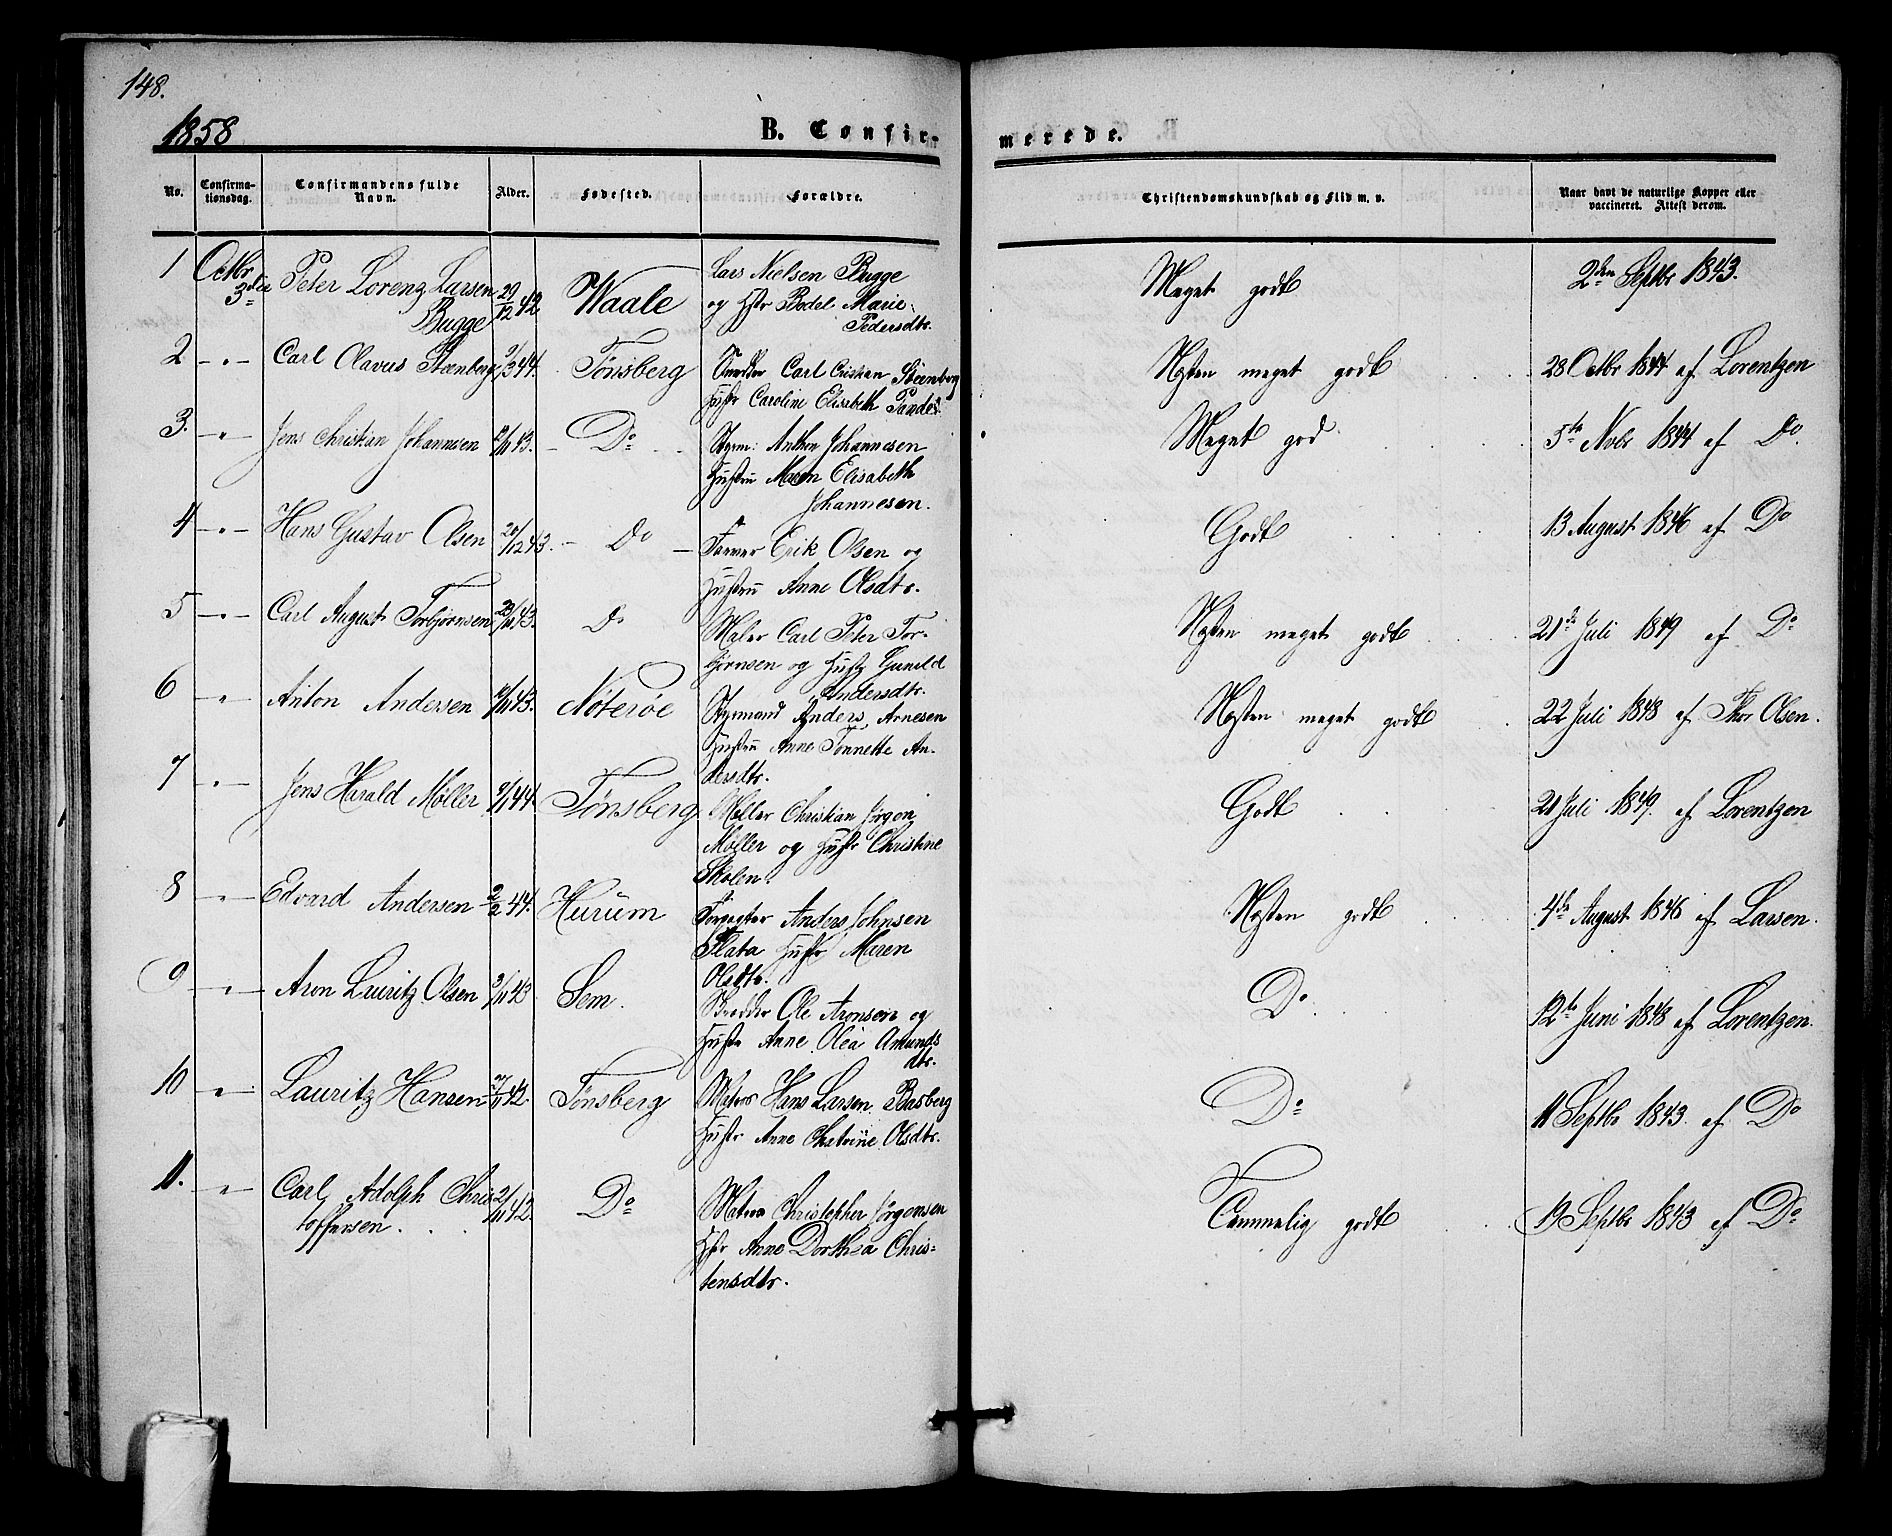 148.
1858
B. Confir-
merede.
No.
Confirma-
tionsdag.
Confirmandens fulde
Navn.
Alder.
Fødested.
Forældre.
Christendomskundskab og Flid m. v.
Naar havt de naturlige Kopper eller
vaccineret. Attest derom.
1 Octbr 3die Peter Lorenz Larsen
Bugge 29/12 42 Waale
Lars Nielsen Bugge
og Hstr Bodel Marie
Pedersdtr.
Meget godt
2den Septbr 1843.
2 - " - Carl Olavus Steenberg 9/3 44. Tønsberg
Carl Cristian Steenberg
Hustr Caroline Elisabeth
Næsten meget godt
28 Octbr 1844 af Lorentzen
3. - " - Jens Christian Johannesen /11 43. Do
Stym: Anthon Johannesen
Hustru Maren Elisabeth
Johannesen.
Meget god
5te Novbr 1844 af Do.
4 - " - Hans Gustav Olsen 20/12 43. Do
Erik Olsen og
Hustru Anne Olsdtr.
Godt
13 August 1846 af Do
5 - " - Carl August Torbjørnsen 23/11 43. Do
Maler Carl Peter Tor-
bjørnsen og Hustr Gunild
Andersdtr.
Næsten meget godt
21de Juli 1849 af Do
6 - " Anton Andersen /11 43. Nøterøe
Styrmand Anders Arnesen
Hustru Anne Tonnette An-
dersdtr.
Næsten meget godt
22 Juli 1848 af Thor Olsen.
7 - " - Jens Harald Møller 9/1 44. Tønsberg
Møller Christian Jørgen
Møller og Hustr Christine
Skolen.
Godt
21 Juli 1849. af Lorentzen
8 - " - Edvard Andersen 2/2 44. Hurum
Anders Johnsen
Hustr Maren
Olsdtr.
Næsten godt
4de August 1846 af Larsen.
9 - " - Aron Luritz Olsen 3/11 43 Sem.
Skrædder Ole Aronsen og
Hustr Anne Olea Amunds
dtr.
Do.
12te Juni 1848 af Lorentzen.
10 - " - Lauritz Hansen 27/11 42. Tønsberg
Matros Hans Larsen Basberg
Hustr Anne Chatrine Olsdtr.
Do
11 Septbr 1843 af Do
11. - " - Carl Adolph Chris
toffersen 21/11 42. Do
Matros Christopher Jørgensen
Hstr Anne Dorthea Chris-
tensdtr.
Temmelig godt
19 Septbr 1843 af Do